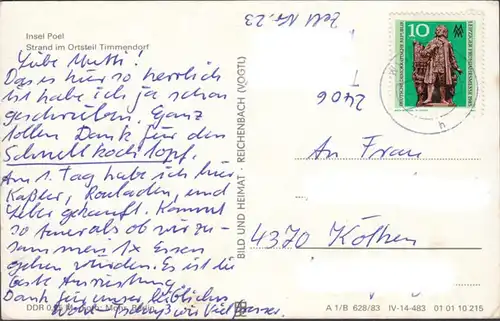 Insel Poel
Strand im Ortsteil Timmendorf
Zelt Nr. 23
Liebe Mutti!
Das es hier so herrlich
ist habe ich ja schon
geschrieben. Ganz
tollen Dank für den
Schnellkochtopf.
Am 1. Tag habe ich hier
Kaßler, Rouladen, und
Leber gekauft. Kommt
so teuer als ob wir zu-
sammen 1x Essen
gehen würden. Es ist die
beste Ausrüstung
Dank für unser
wir
BILD UND HEIMAT · REICHENBACH (VOGTL)
10
DEUTSCHE DEMOKRATISCHE REPUBLIK
LEIPZIGER FRÜHJAHRSMESSE 1985
2406
h
An Frau
4370 Köthen
DDR 0,
A 1/B 628/83 IV-14-483 01 01 10 215